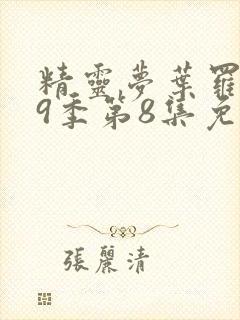 精靈夢葉羅
9季第8集免
張麗清